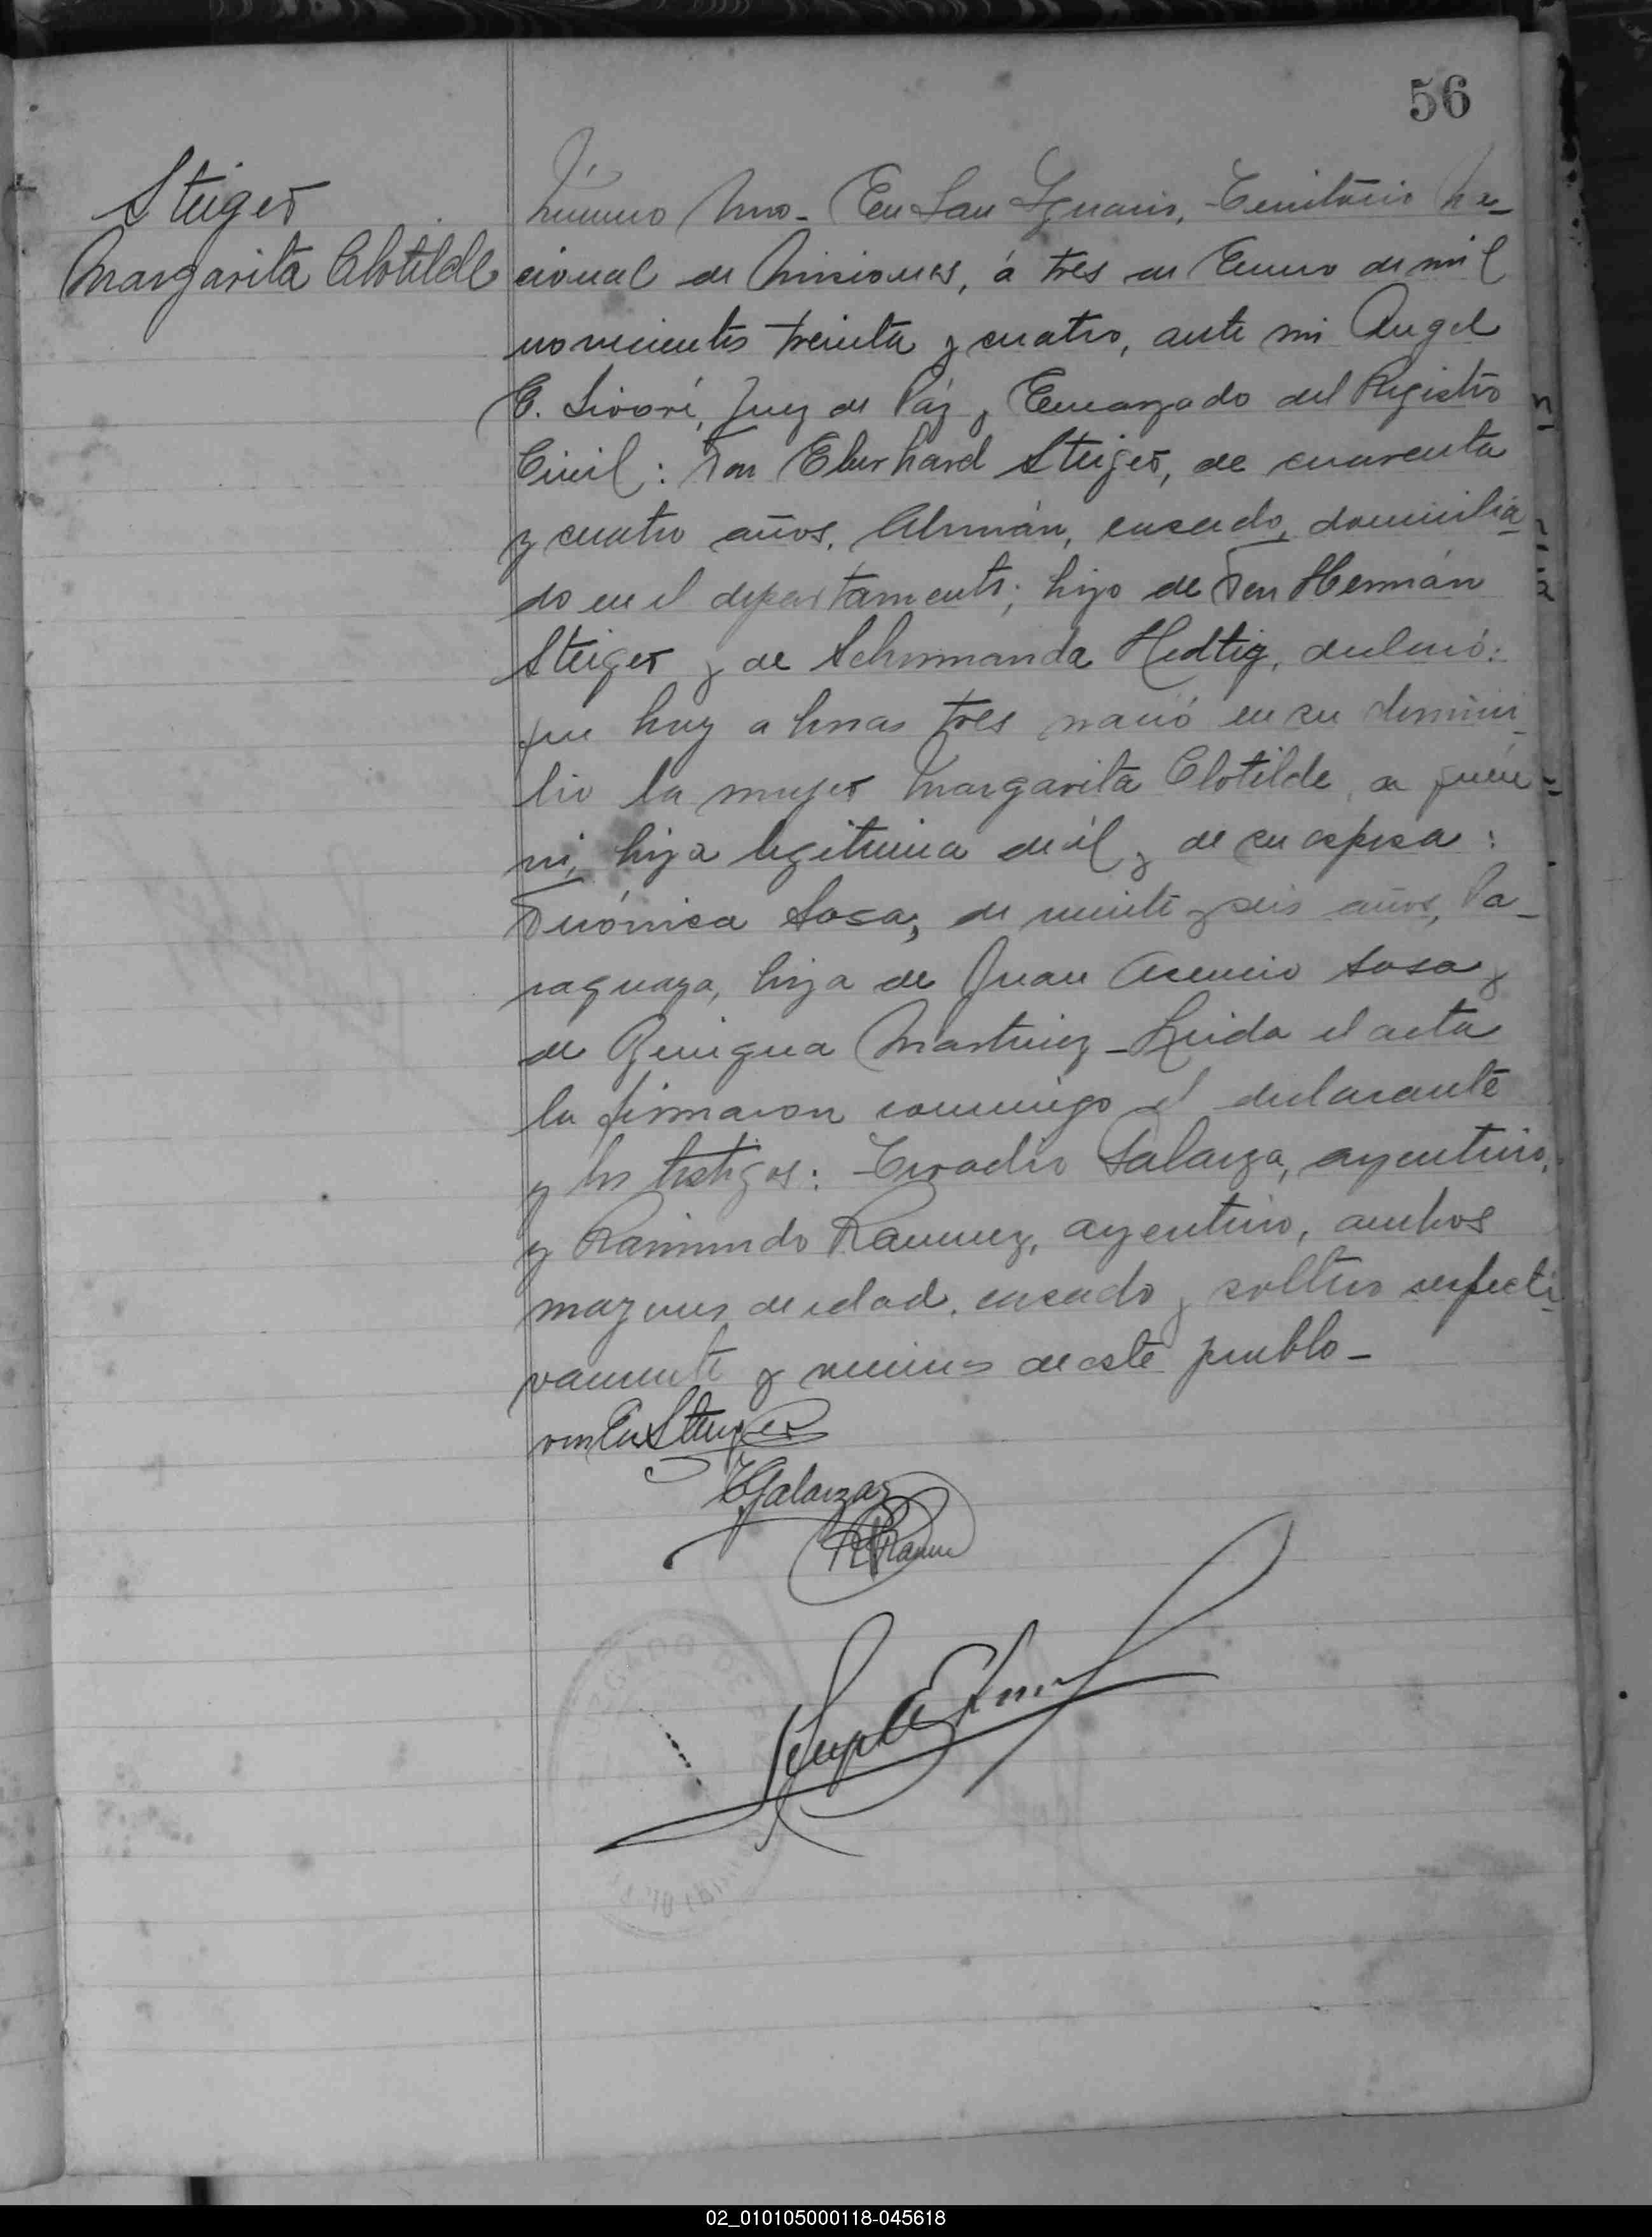 56
Steiger
Margarita Clotilde
Número Uno - En San Ignacio, Territorio Na-
cional de Misiones, á tres de Enero de mil
novecientos treinta y cuatro, ante mi Angel
E. Sivori, Juez de Páz y Encargado del Registro
Civil: Don Eberhard Steiger, de cuarenta
y cuatro años, Alemán, casado, domicilia-
do en el departamento; hijo de Don Hermán
Steiger y de Schmmanda Hedtig, declaró:
que hoy a horas tres nació en su domici-
lio la mujer Margarita Clotilde, a quién
vi, hija legitima de él y de su esposa:
Verónica Sosa, de veinte y seis años, Pa-
raguaya, hija de Juan Asencio Sosa y
de Martinez - Leida el acta
la firmaron conmigo el declarante
y los testigos: Galarza, argentino,
y Raimundo Ramirez, argentino, ambos
mayores de edad, casado y soltero respecti-
vamente y vecinos de este pueblo -
Steiger
Galarza
02_010105000118-045618